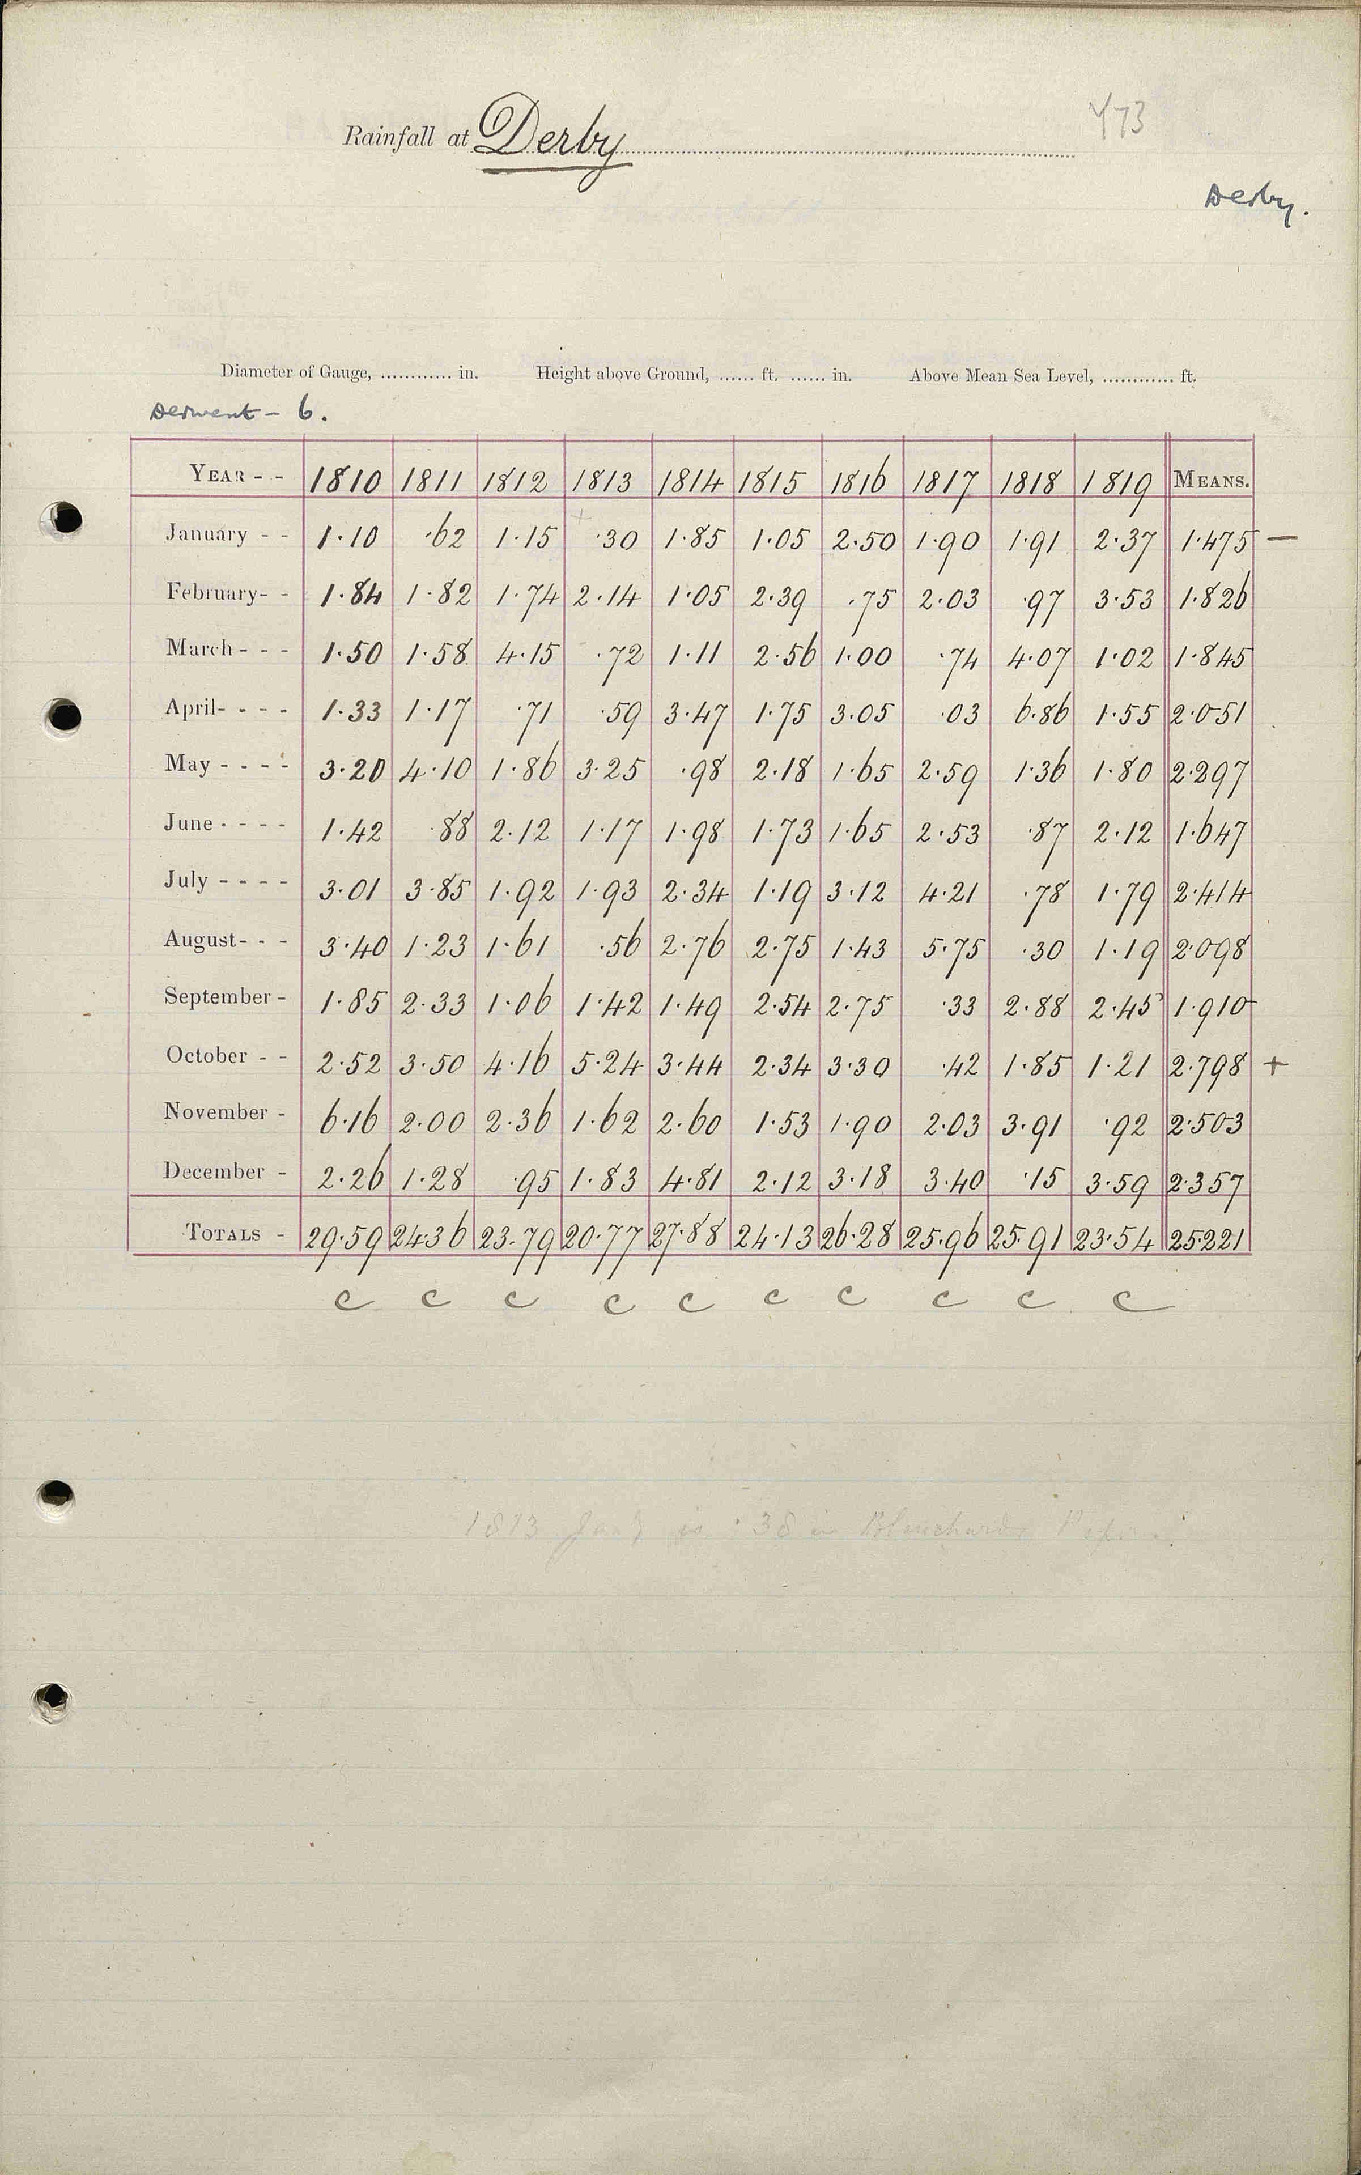 Y73
Rainfall at Derby
Derby.
Diameter of Gauge, ............ in. Height above Ground, ...... ft. ...... in. Above Mean Sea Level, ............ ft.
Derwent - 6.
YEAR - - 1810 1811 1812 1813 1814 1815 1816 1817 1818 1819 MEANS.
January - - 1.10 .62 1.15 .30 1.85 1.05 2.50 1.90 1.91 2.37 1.475 —
February- - 1.84 1.82 1.74 2.14 1.05 2.39 .75 2.03 .97 3.53 1.826
March - - - 1.50 1.58 4.15 .72 1.11 2.56 1.00 .74 4.07 1.02 1.845
April- - - - 1.33 1.17 .71 .59 3.47 1.75 3.05 .03 6.86 1.55 2.051
May - - - - 3.20 4.10 1.86 3.25 .98 2.18 1.65 2.59 1.36 1.80 2.297
June - - - - 1.42 .88 2.12 1.17 1.98 1.73 1.65 2.53 .87 2.12 1.647
July - - - - 3.01 3.85 1.92 1.93 2.34 1.19 3.12 4.21 .78 1.79 2.414
August- - - 3.40 1.23 1.61 .56 2.76 2.75 1.43 5.75 .30 1.19 2.098
September - 1.85 2.33 1.06 1.42 1.49 2.54 2.75 .33 2.88 2.45 1.910
October - - 2.52 3.50 4.16 5.24 3.44 2.34 3.30 .42 1.85 1.21 2.798 +
November - 6.16 2.00 2.36 1.62 2.60 1.53 1.90 2.03 3.91 .92 2.503
December - 2.26 1.28 .95 1.83 4.81 2.12 3.18 3.40 .15 3.59 2.357
TOTALS - 29.59 24.36 23.79 20.77 27.88 24.13 26.28 25.96 25.91 23.54 25.221
c c c c c c c c c c
1813 Jany is .38 in Blanchards